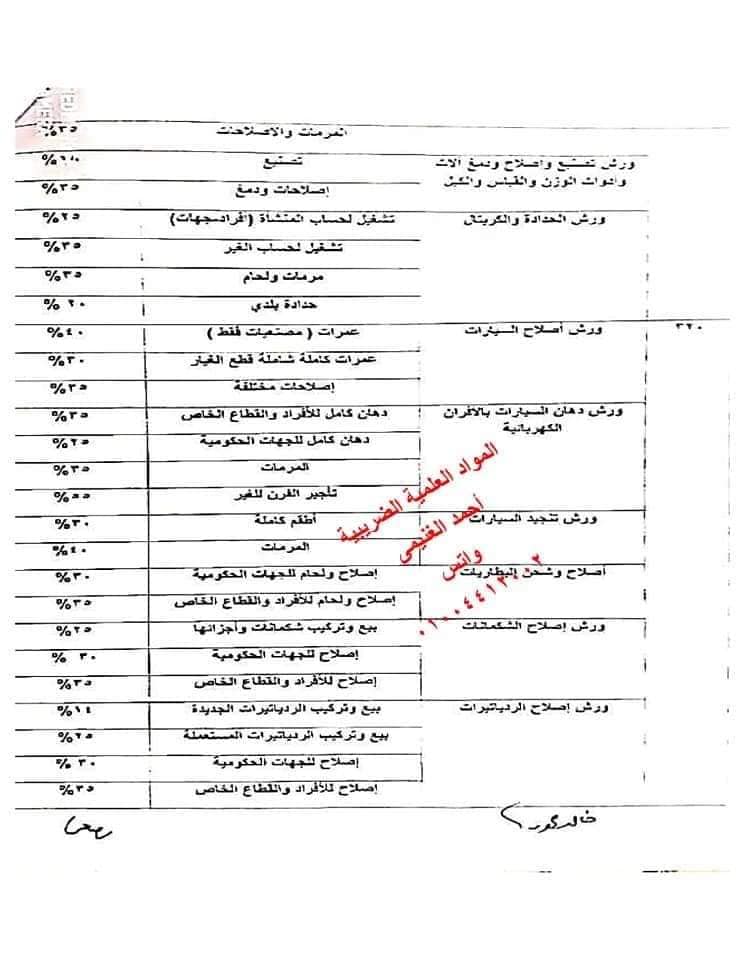 المرمات والإصلاحات ٣٥%
ورش تصنيع وإصلاح ودمغ آلات تصنيع
وأدوات الوزن والقياس والكيل إصلاحات ودمغ ٣٥%
ورش الحدادة والكريتال تشغيل لحساب المنشأة (أفراد-جهات) ٢٥%
تشغيل لحساب الغير ٣٥%
مرمات ولحام ٣٥%
حدادة بلدي ٢٠ %
٣٢٠ ورش أصلاح السيارات عمرات ( مصنعيات فقط ) ٤٠%
عمرات كاملة شاملة قطع الغيار ٣٠%
إصلاحات مختلفة ٣٥%
ورش دهان السيارات بالافران دهان كامل للأفراد والقطاع الخاص ٣٥%
الكهربائية
دهان كامل للجهات الحكومية ٢٥%
المرمات ٣٥%
تأجير الفرن للغير ٥٥%
ورش تنجيد السيارات أطقم كاملة ٣٠%
المرمات ٤٠%
أصلاح وشحن البطاريات إصلاح ولحام للجهات الحكومية ٣٠%
إصلاح ولحام للأفراد والقطاع الخاص ٣٥%
ورش إصلاح الشكمانات بيع وتركيب شكمانات وأجزائها ٢٥%
إصلاح للجهات الحكومية ٣٠ %
إصلاح للأفراد والقطاع الخاص ٣٥%
ورش إصلاح الردياتيرات بيع وتركيب الردياتيرات الجديدة ١٤%
بيع وتركيب الردياتيرات المستعملة ٢٥%
إصلاح للجهات الحكومية ٣٠ %
إصلاح للأفراد والقطاع الخاص ٣٥%
المواد العلمية الضريبية
أحمد الغنيمى
واتس